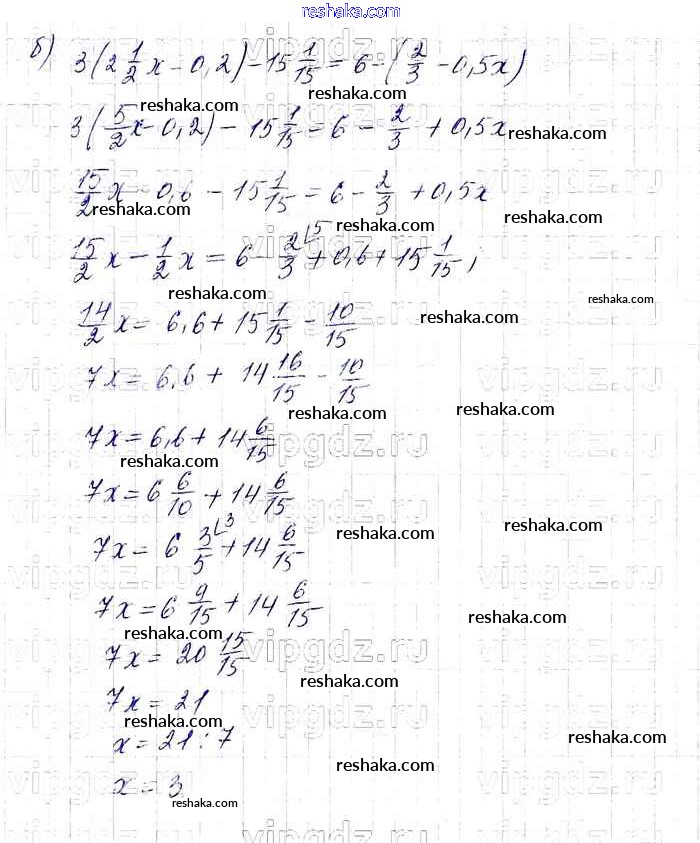 reshaka.com
б) 3(2 1/2 x - 0,2) - 15 1/15 = 6 - (2/3 - 0,5x)
reshaka.com reshaka.com
3(5/2 x - 0,2) - 15 1/15 = 6 - 2/3 + 0,5x
reshaka.com reshaka.com
15/2 x - 0,6 - 15 1/15 = 6 - 2/3 + 0,5x
reshaka.com reshaka.com reshaka.com
15/2 x - 1/2 x = 6 - 2/3 ⌊5 + 0,6 + 15 1/15 ;
reshaka.com reshaka.com reshaka.com
14/2 x = 6,6 + 15 1/15 - 10/15
reshaka.com
7x = 6,6 + 14 16/15 - 10/15
reshaka.com reshaka.com
7x = 6,6 + 14 6/15
reshaka.com
7x = 6 6/10 + 14 6/15
7x = 6 3/5 ⌊3 + 14 6/15
reshaka.com reshaka.com
7x = 6 9/15 + 14 6/15
reshaka.com reshaka.com
7x = 20 15/15
reshaka.com
7x = 21
reshaka.com
x = 21 : 7
reshaka.com reshaka.com
x = 3
reshaka.com
vipgdz.ru